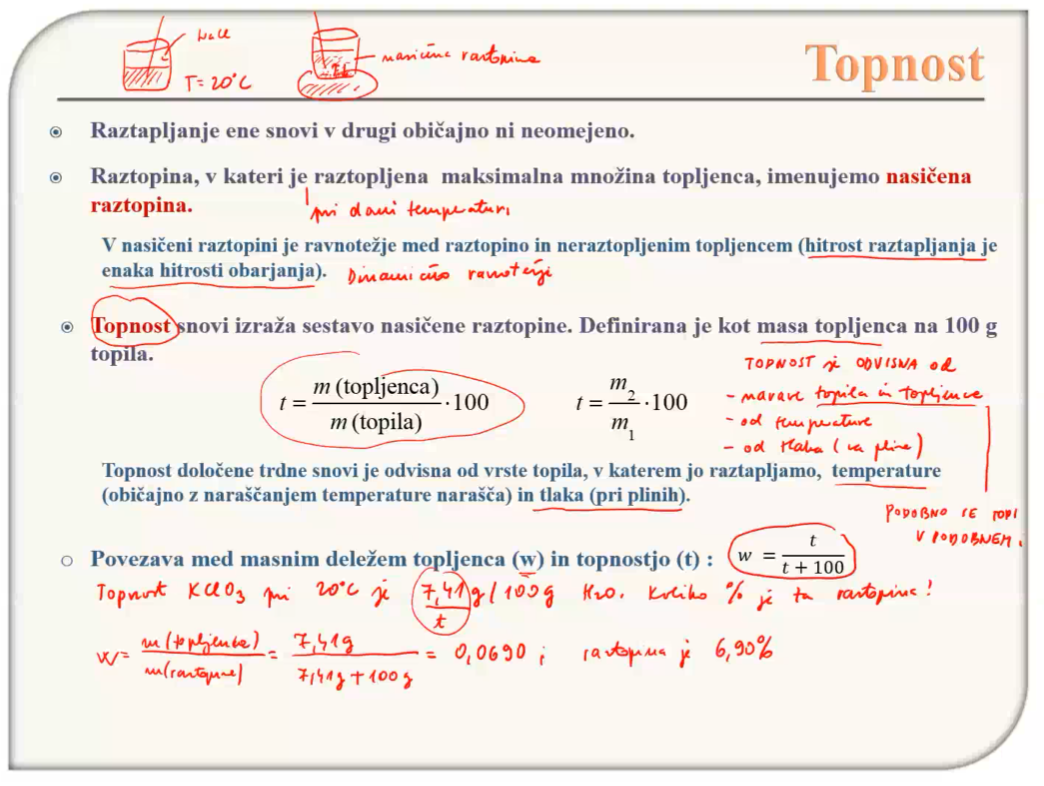 NaCl
T=20°C
nasičena raztopina
Topnost
Raztapljanje ene snovi v drugi običajno ni neomejeno.
Raztopina, v kateri je raztopljena maksimalna množina topljenca, imenujemo nasičena
raztopina.
pri dani temperaturi
V nasičeni raztopini je ravnotežje med raztopino in neraztopljenim topljencem (hitrost raztapljanja je
enaka hitrosti obarjanja). Dinamično ravnotežje
Topnost snovi izraža sestavo nasičene raztopine. Definirana je kot masa topljenca na 100 g
topila.
TOPNOST je ODVISNA od
t = m (topljenca) / m (topila) · 100
t = m₂ / m₁ · 100
- narave topila in topljenca
- od temperature
- od tlaka (za pline)
Topnost določene trdne snovi je odvisna od vrste topila, v katerem jo raztapljamo, temperature
(običajno z naraščanjem temperature narašča) in tlaka (pri plinih).
PODOBNO SE TOPI
V PODOBNEM.
Povezava med masnim deležem topljenca (w) in topnostjo (t) : w = t / t + 100
Topnost KClO3 pri 20°C je 7,41g/100g H2O. Koliko % je ta raztopina?
t
w = m(topljenca) / m(raztopine) = 7,41g / 7,41g + 100g = 0,0690 ; raztopina je 6,90%